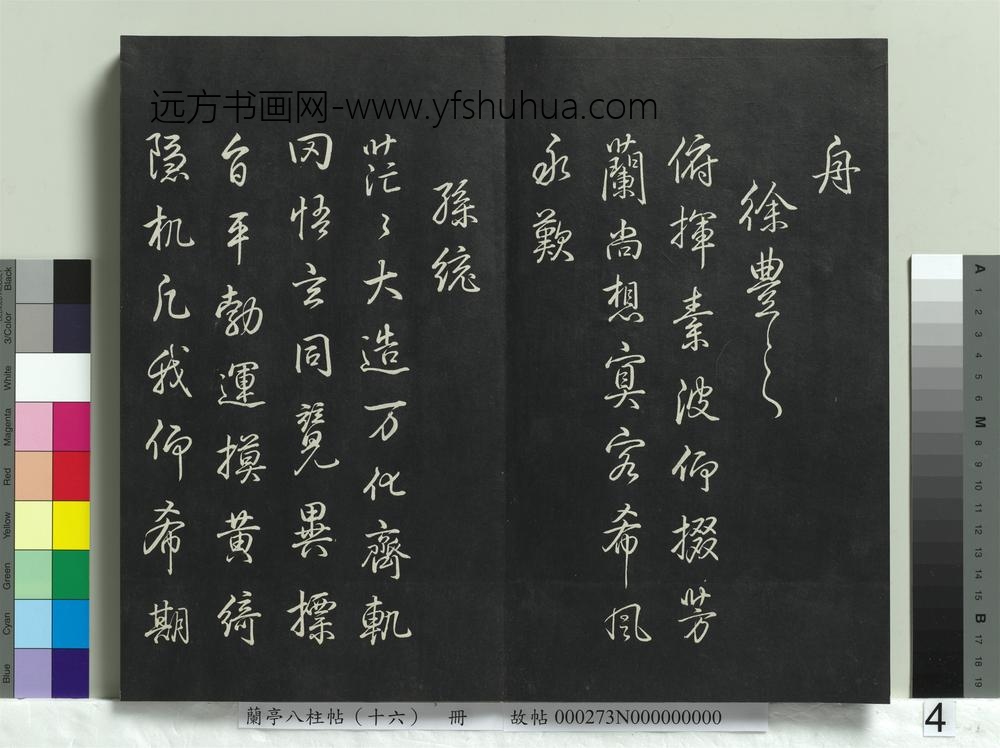 远方书画网-www.yfshuhua.com
舟
徐豐之
俯揮素波仰掇芳
蘭尚想冥客希風
永歎
孫統
茫〻大造万化齊軌
罔悟玄同競異摽
旨平勃運摸黃綺
隐机凡我仰希期
蘭亭八柱帖（十六） 冊 故帖 000273N000000000
4
Black
3/Color
White
Magenta
Red
Yellow
Green
Cyan
Blue
A
1
2
3
4
5
6
M
8
9
10
11
12
13
14
15
B
17
18
19